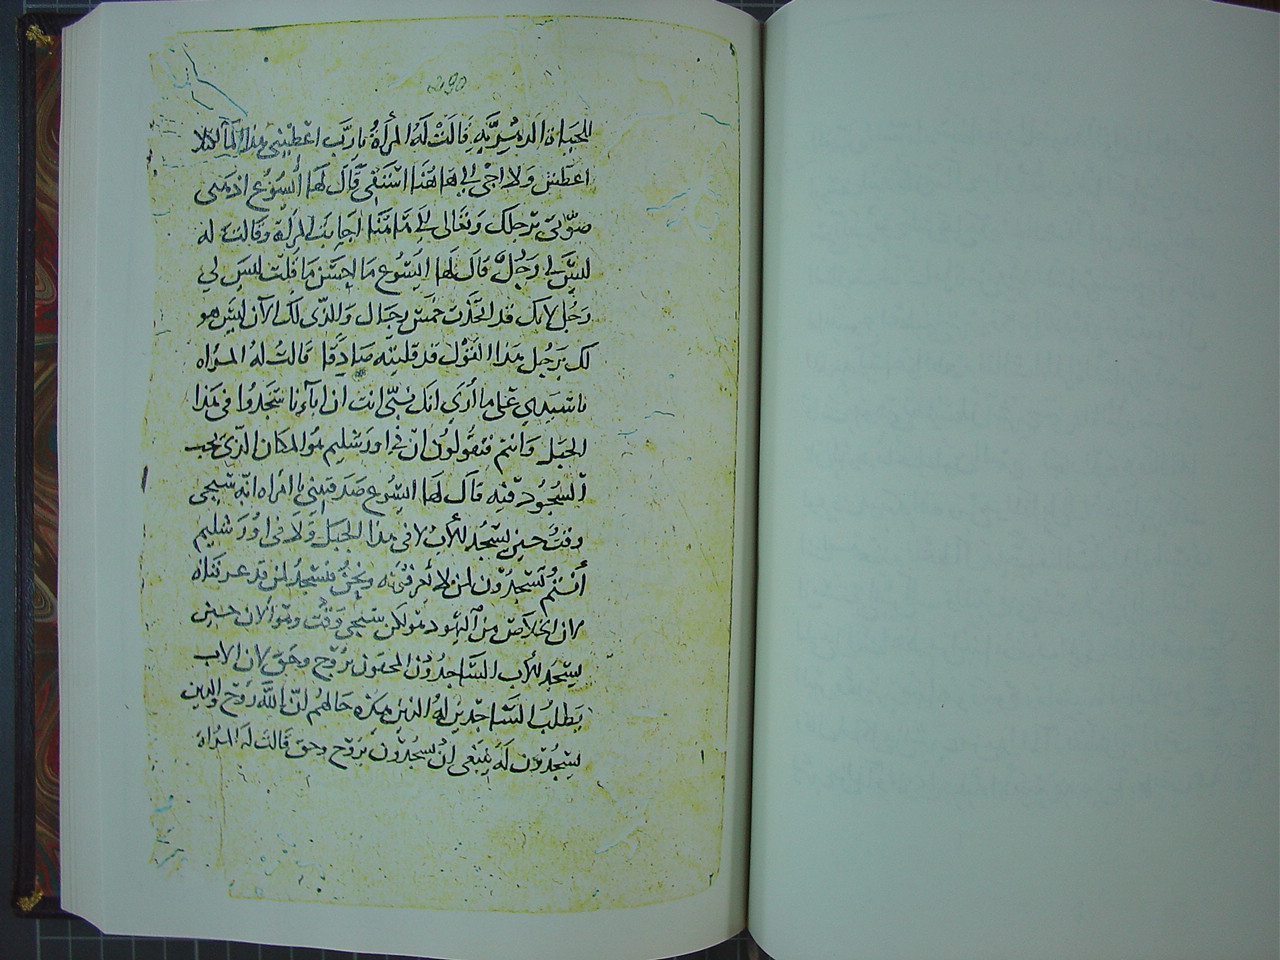 290
الحياة الدهرية قالت له المرأة يا رب اعطيني هذا المآ لالا
اعطش ولا اجي الي هاهنا استقي قال لها أيسوع اذهبي
صوّتي برجلك وتعالي لي هاهنا اجابت المرأة وقالت له
ليس لي رجُل قال لها ايسوع ما احسن ما قلت ليس لي
رجُل لانك قد اتخذت خمس رجال والذي لك الآن ليس هو
لك برجُل هذا القول قد قلتيه صادقا قالت له المراه
يا سيدي علي ما أري انك نبيّ انت ان اباءنا سجدوا في هذا
الجبل وانتم فتقولون انّ في اورشليم هو المكان الذي يجب
السجود فيه قال لها ايسوع صدقيني يا امراه انه سيجي
وقت حين يسجد للآب لا في هذا الجبل ولا في اورشليم
أنتم تسجدون لمن لا تعرفونه ونحن نسجد لمن قد عرفناه
لان الخلاص من اليهود هو لكن سيجي وقت وهو الان حين
يسجد للآب الساجدون المحقون بروح وحق لان الاب
يطلب الساجدين له الذين هكذه حالهم لانّ الله روح والذين
يسجدون له ينبغي ان يسجدون بروح وحق قالت له المراه